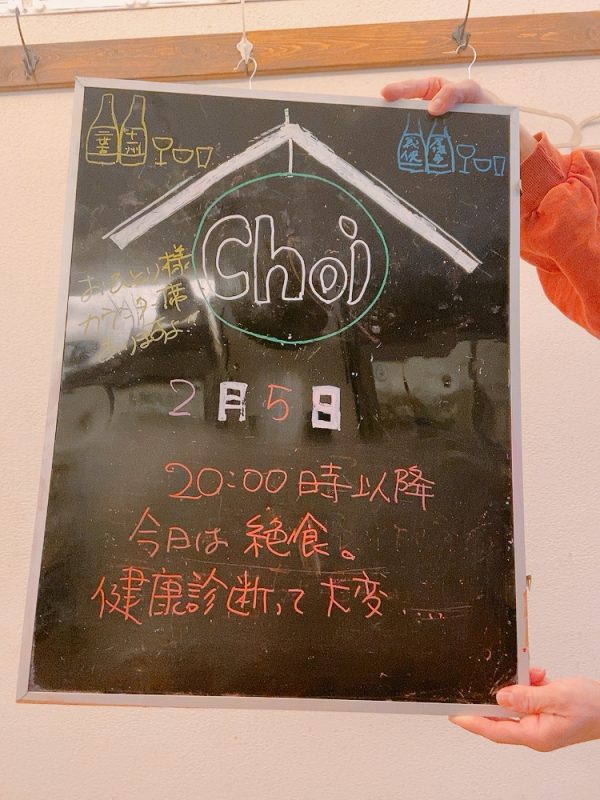 十州
Choi
おひとり様
カウンター席
ありますよー
2月5日
20:00時以降
今日は絶食。
健康診断って大変....